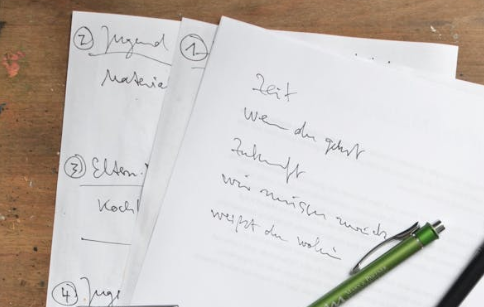 ② Jugend
Materia
③ Eltern
Kochl
④ Juge
①
Zeit
Wenn du gehst
Zukunft
wir müssen zurück
weißt du wohin